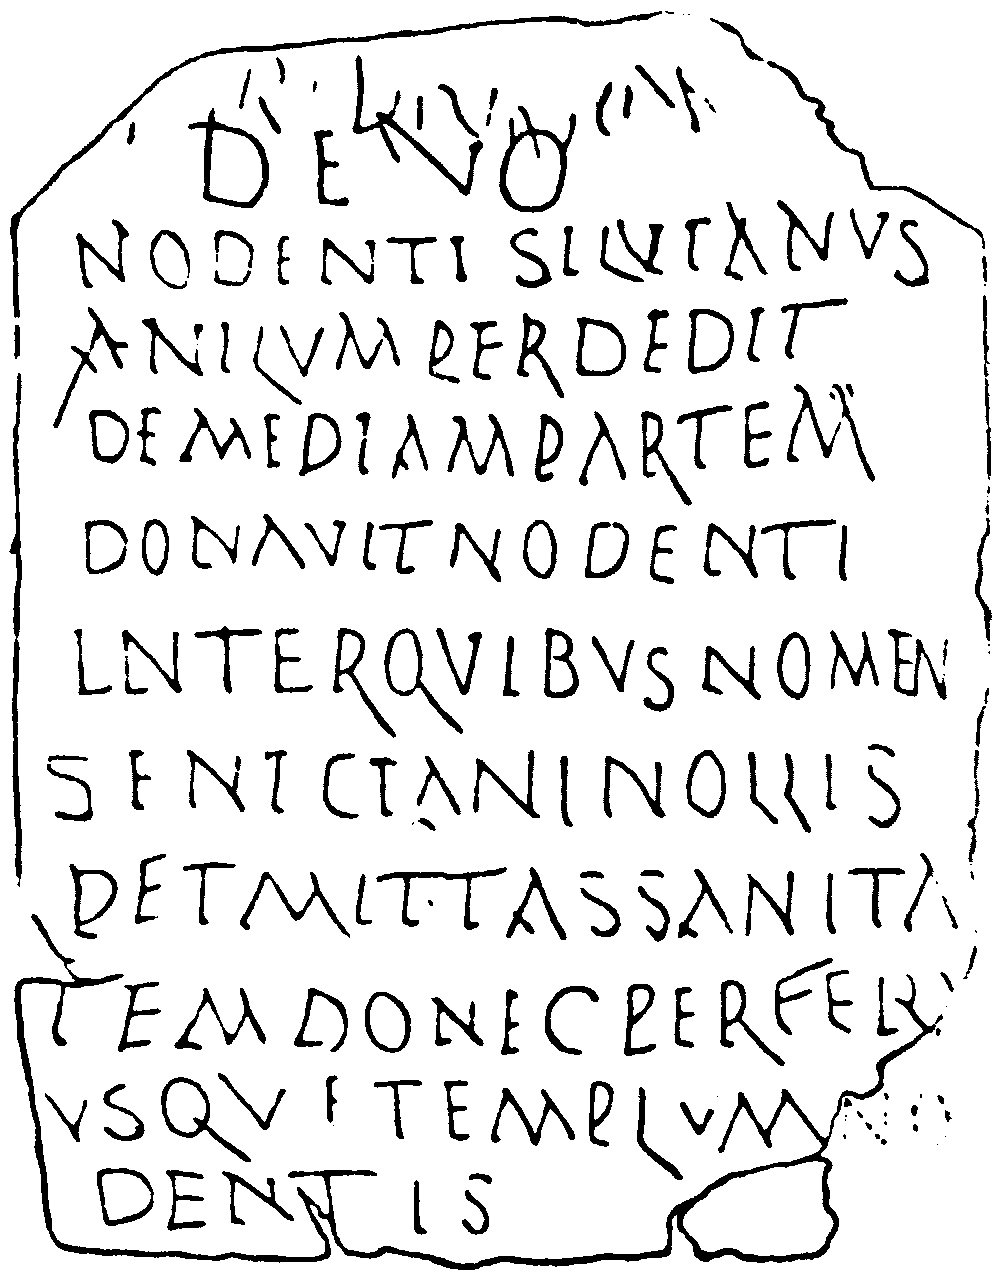 DEVO
NODENTI SILVIANVS
ANILVM PERDEDIT
DEMEDIAM PARTEM
DONAVIT NODENTI
INTER QVIBVS NOMEN
SENICIANI NOLLIS
PETMITTAS SANITA
TEM DONEC PERFERA
VSQVE TEMPLVM NO
DENTIS